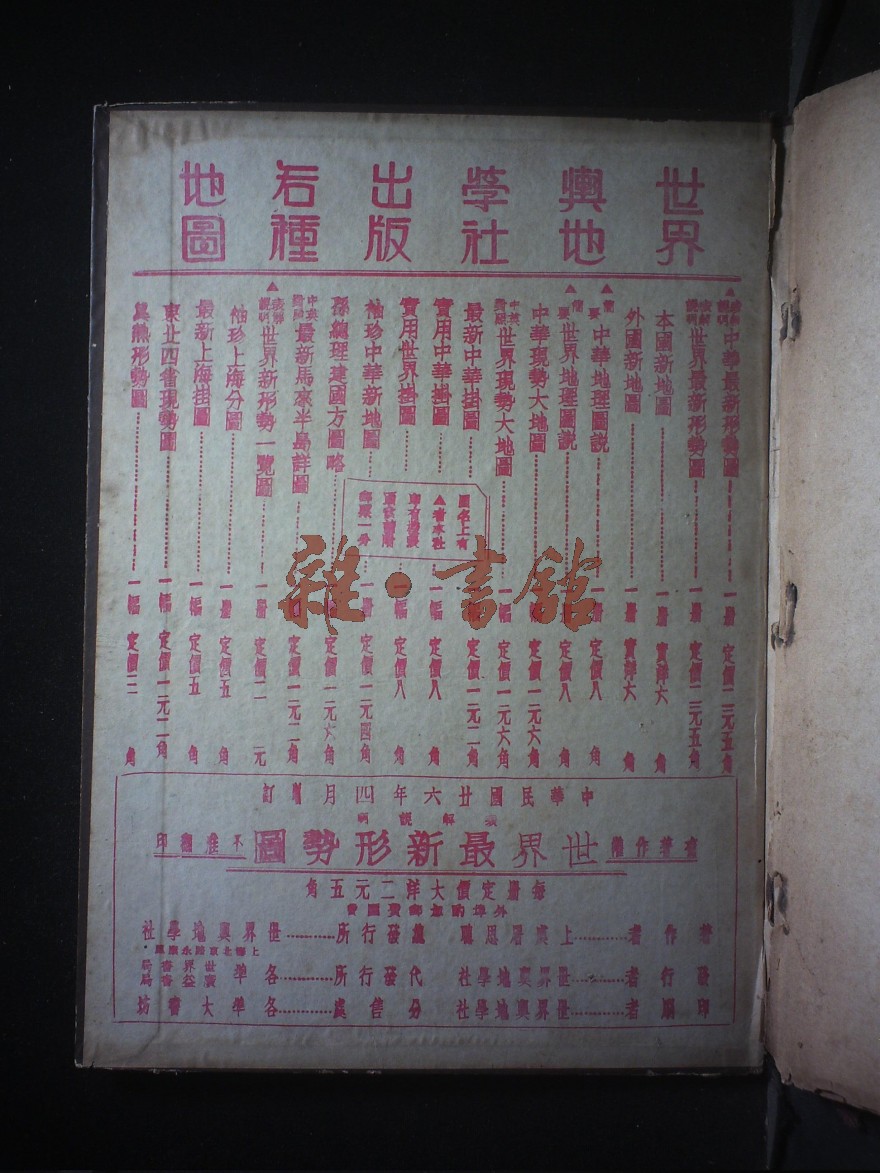 世界輿地學社出版各種地圖
▲表解說明 中華最新形勢圖……一册 定價二元五角
表解說明 世界最新形勢圖……一册 定價二元五角
本國新地圖……一册 實洋六角
外國新地圖……一册 實洋六角
▲簡要 中華地理圖說……一册 定價八角
▲簡要 世界地理圖說……一册 定價八角
中華現勢大地圖……一幅 定價一元六角
中英對照 世界現勢大地圖……一幅 定價一元六角
最新中華掛圖……一幅 定價一元二角
實用中華掛圖……一幅 定價八角
實用世界掛圖……一幅 定價八角
袖珍中華新地圖……一册 定價一元四角
孫總理建國方圖略……一幅 定價一元六角
中英對照 最新馬來半島詳圖……一幅 定價一元二角
▲表解說明 世界新形勢一覽圖……一册 定價二元
袖珍上海分圖……一册 定價五角
最新上海掛圖……一幅 定價五角
東北四省現勢圖……一幅 定價一元二角
冀熱形勢圖……一幅 定價二角
圖名上有
▲者本社
印有樣張
函索請附
郵票一分
雜·書館
中華民國廿六年四月增訂
表解說明
有著作權 世界最新形勢圖 不准翻印
每册定價大洋二元五角
外埠酌加郵費匯費
著作者……上虞屠思聰 總發行所……世界輿地學社
上海北京路永康里
發行者……世界輿地學社 代發行所……各埠 世界書局 廣益書局
印刷者……世界輿地學社 分售處……各埠大書坊